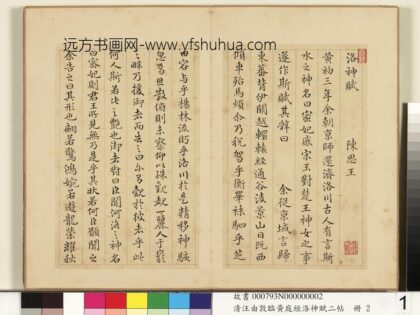 远方书画网-www.yfshuhua.com
洛神賦 陳思王
黃初三年余朝京師還濟洛川古人有言斯
水之神名曰宓妃感宋玉對楚王神女之事
遂作斯賦其辭曰 余從京域言歸
東藩背伊闕越轘轅經通谷陵景山日既西
傾車殆馬煩余乃稅駕乎蘅皋秣駟乎芝
田容與乎楊林流眄乎洛川於是精移神駭
忽焉思散俯則未察仰以殊觀覩一麗人于巖
之畔乃援御者而告之曰爾有覿於彼者乎此
何人斯若此之艷也御者對曰臣聞河洛之神名
曰宓妃則君王所見無乃是乎其狀若何臣願聞之
余告之曰其形也翩若驚鴻婉若遊龍榮耀秋
故書 000793N000000002
清汪由敦臨黃庭經洛神賦二帖 冊 2
1